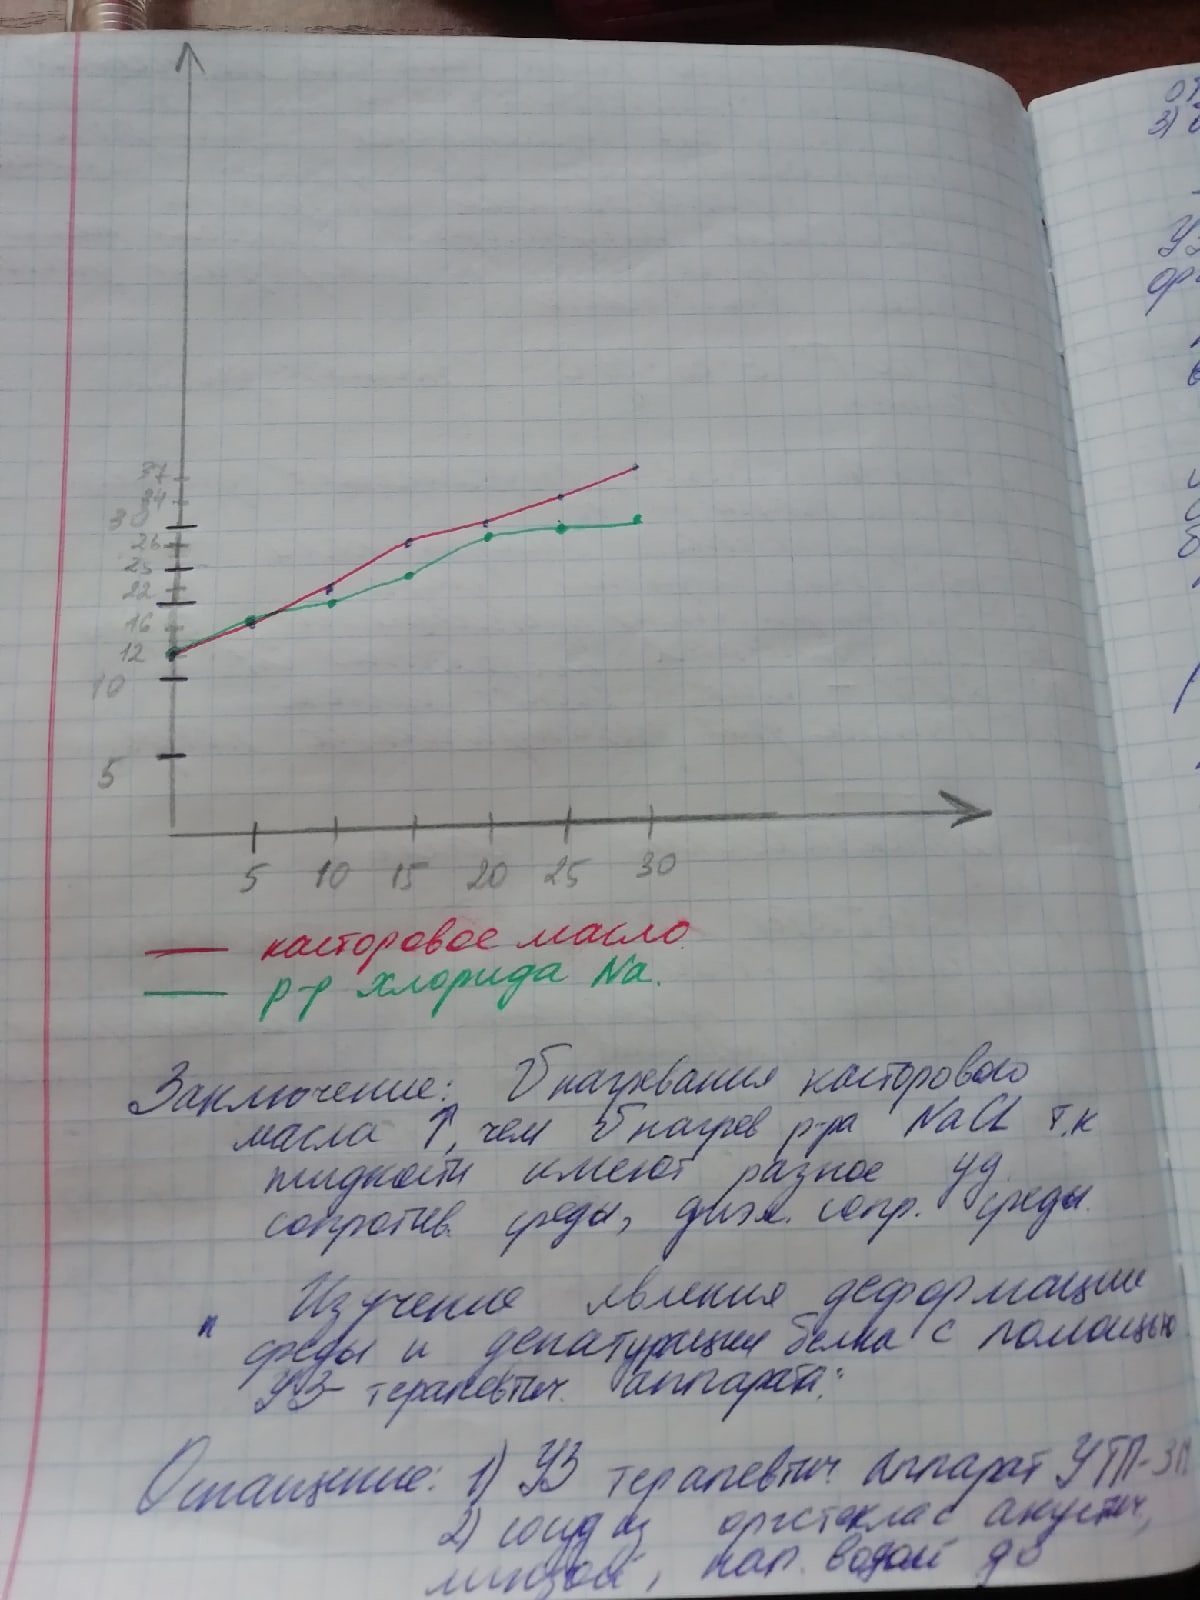 37
34
30
26
25
22
16
12
10
5
5 10 15 20 25 30
касторовое масло
р-р хлорида Na.
Заключение: нагревания касторового
масла ↑, чем нагрев р-ра NaCl т.к
жидкости имеют разное уд.
сопротив. среды, диэл. сопр. среды.
" Изучение явления деформации
среды и денатурации белка с помощью
УЗ- терапевтич. аппарата:"
Оснащение: 1) УЗ терапевтич. аппарат УТП-3М
2) сосуд из оргстекла с акустич,
линзой, нап. водой до
от
3) в
УЗ